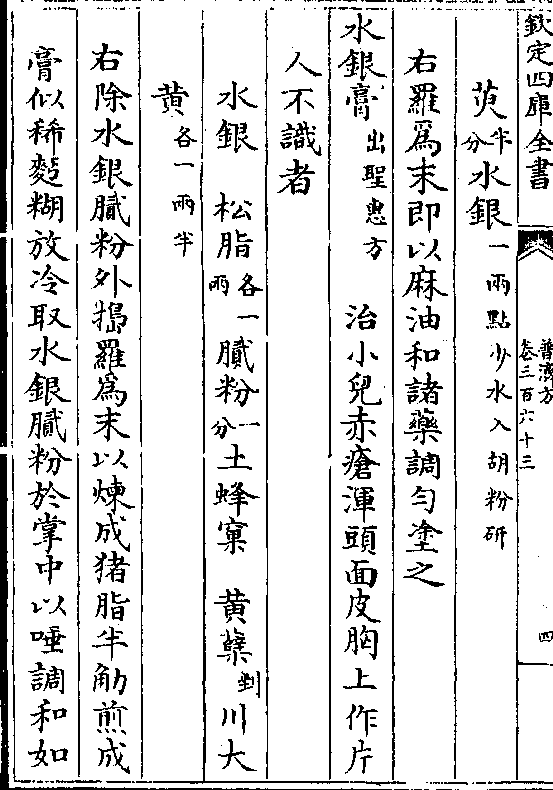 欽定四庫全書
普濟方
卷三百六十三
四
莄半分水銀一兩點少水入胡粉研
右羅爲末即以麻油和諸藥調勻塗之
水銀膏出聖惠方 治小兒赤瘡渾頭面皮胸上作片
人不識者
水銀 松脂各一兩 膩粉一分 土蜂窠 黄蘗剉 川大
黄各一兩半
右除水銀膩粉外搗羅爲末以煉成猪脂半觔煎成
膏似稀麪糊放冷取水銀膩粉於掌中以唾調和如